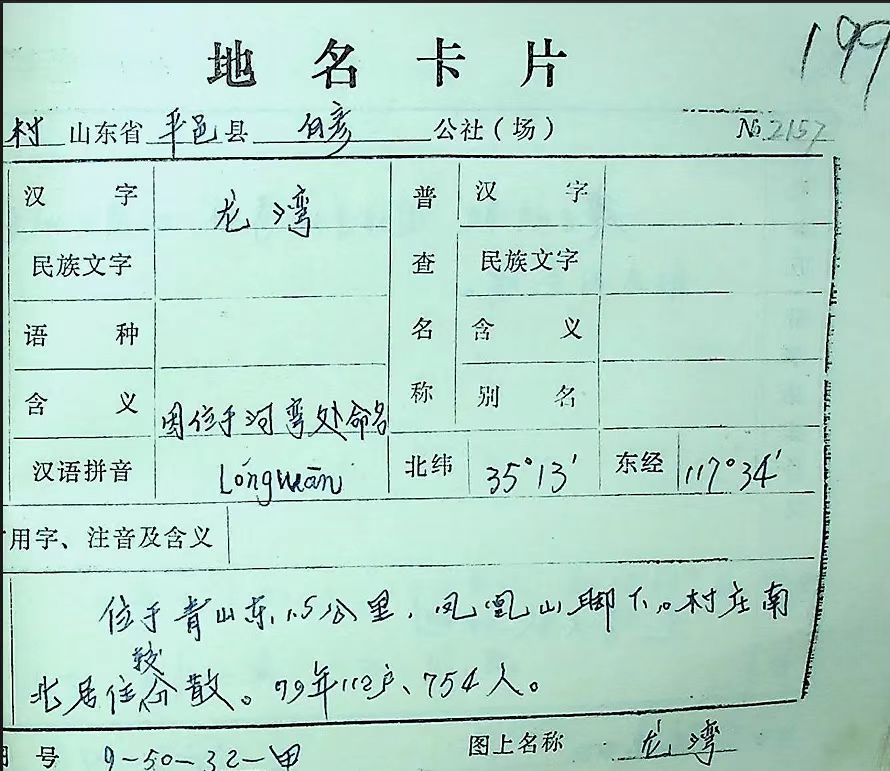 199
地名卡片
村 山东省 平邑县 白彦 公社(场) № 2157
汉字 龙湾 普查名称 汉字
民族文字 民族文字
语种 含义
含义 因位于河湾处命名 别名
汉语拼音 Lóngwān 北纬 35°13′ 东经 117°34′
用字、注音及含义
位于青山东1.5公里，凤凰山脚下。村庄南
北居住较分散。79年112户、754人。
号 9-50-32-甲 图上名称 龙湾